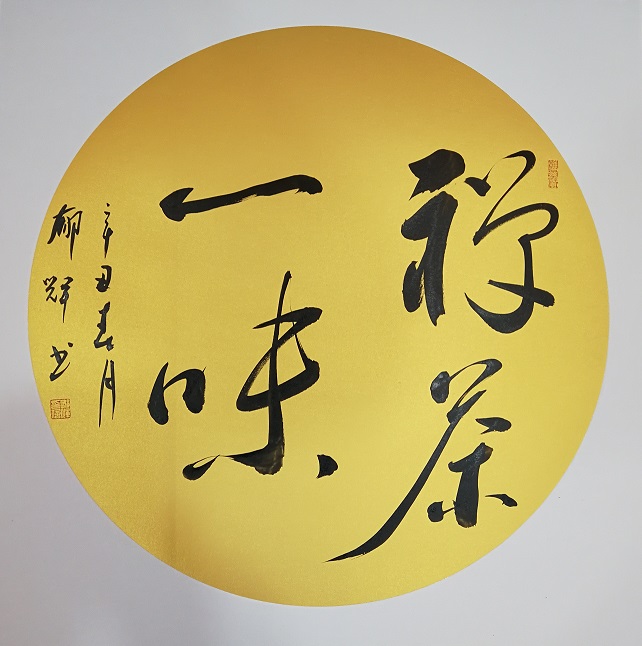 禅茶
一味
辛丑春月
郁辉书